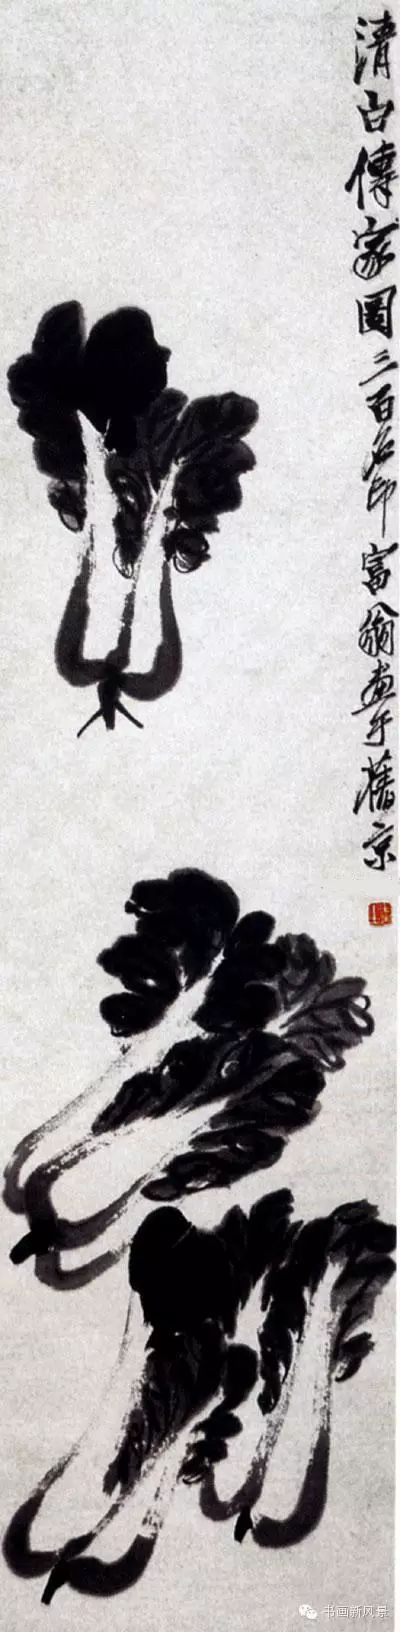 清白傳家圖三百石印富翁畫于舊京
书画新风景